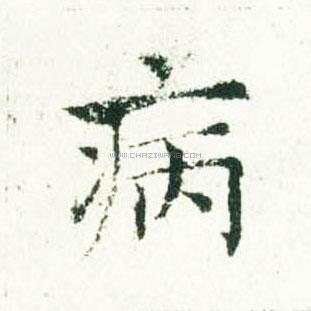 病
WWW.CHAZIWANG.COM